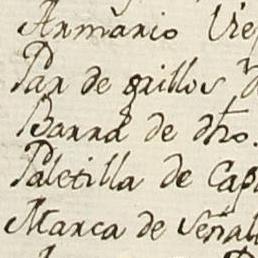 Armario Vie
Par de grillos d
Barra de dho.
Paletilla de Cap
Marca de Señal